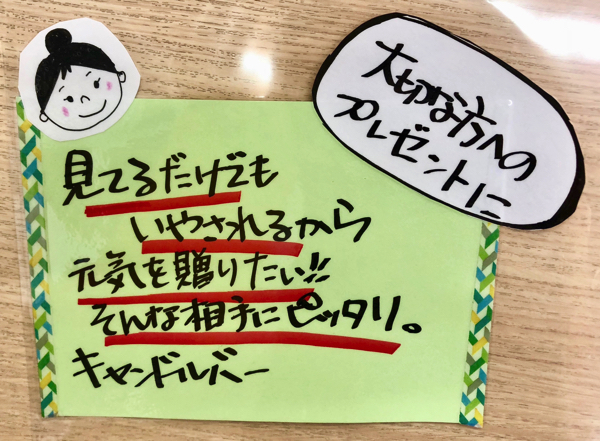 大切な方への
プレゼントに
見てるだけでも
いやされるから
元気を贈りたい!!
そんな相手にピッタリ。
キャンドルバー